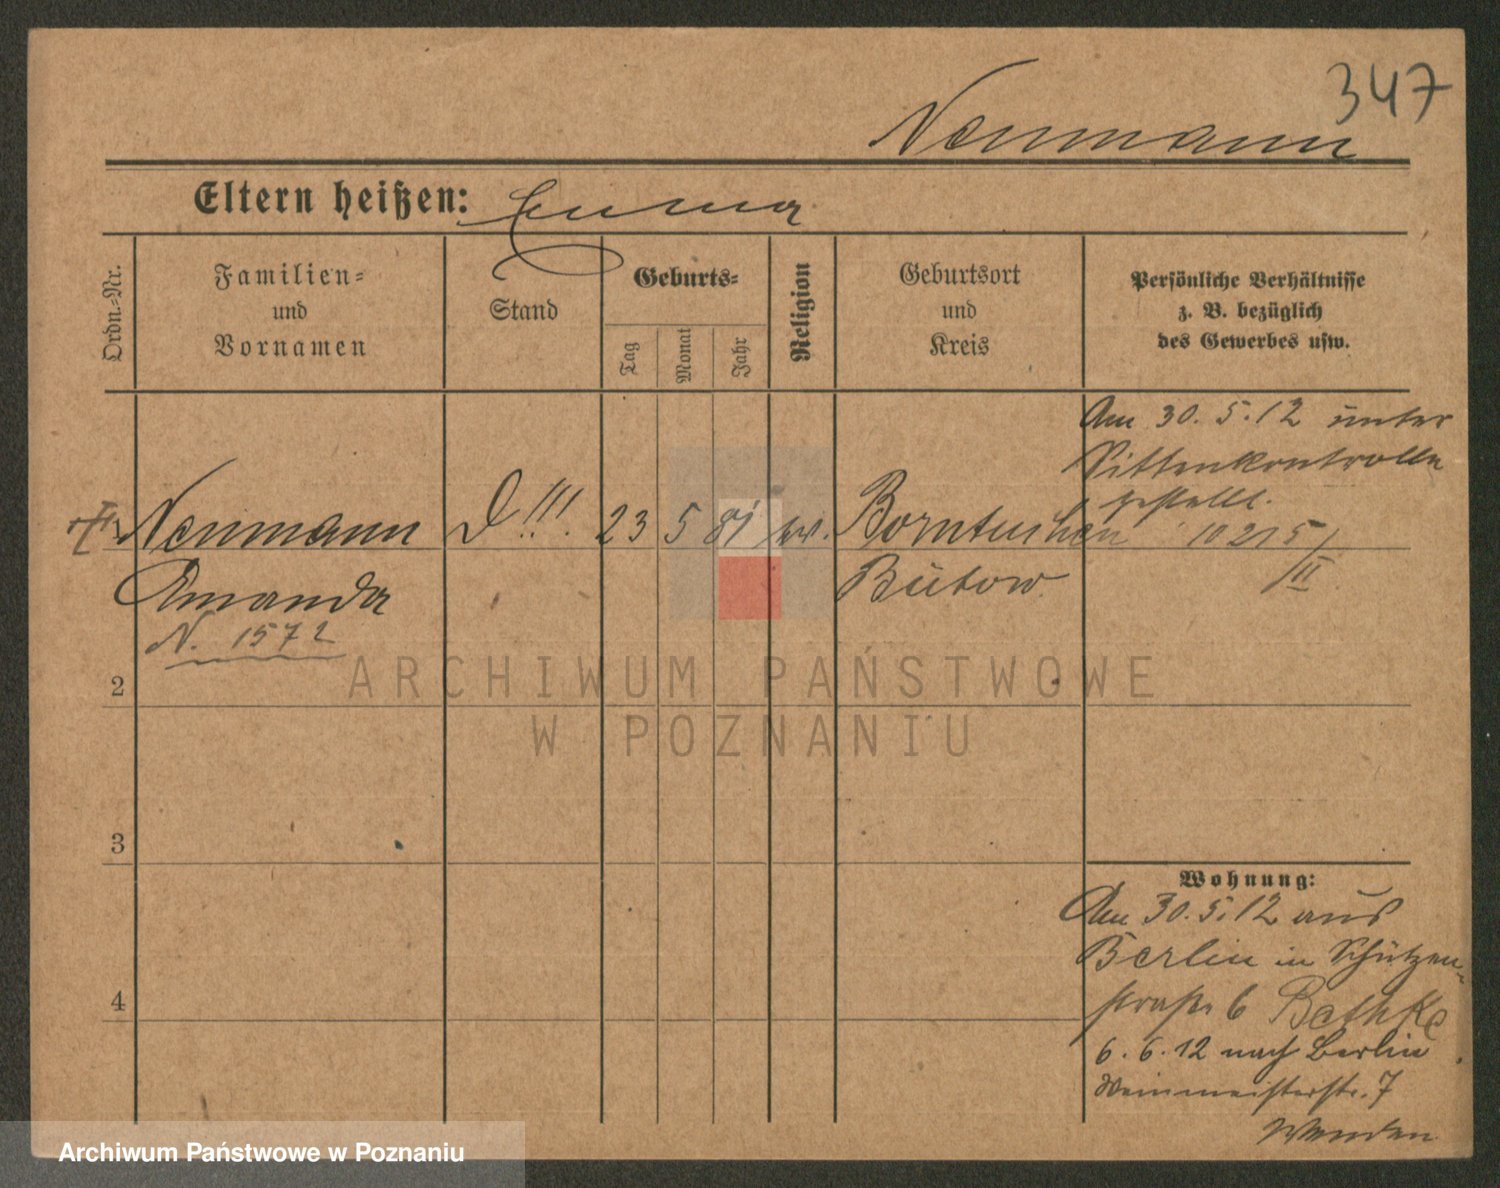 347
Neumann
Eltern heißen: Emma
Ordn.=Nr.
Familien=
und
Vornamen
Stand
Geburts=
Tag
Monat
Jahr
Religion
Geburtsort
und
Kreis
Persönliche Verhältnisse
z. B. bezüglich
des Gewerbes usw.
Am 30. 5. 12 unter
Sittenkontrolle
gestellt.
Neumann
D!!!
23 5 81
Borntuchen
10215/
II
Amanda
Bütow
N. 1572
2
3
4
Wohnung:
Am 30. 5. 12 aus
Berlin in Schützen-
straße 6 Bethke
6. 6. 12 nach Berlin
Weinmeisterstr. 7
Wenden
ARCHIWUM PAŃSTWOWE
W POZNANIU
Archiwum Państwowe w Poznaniu